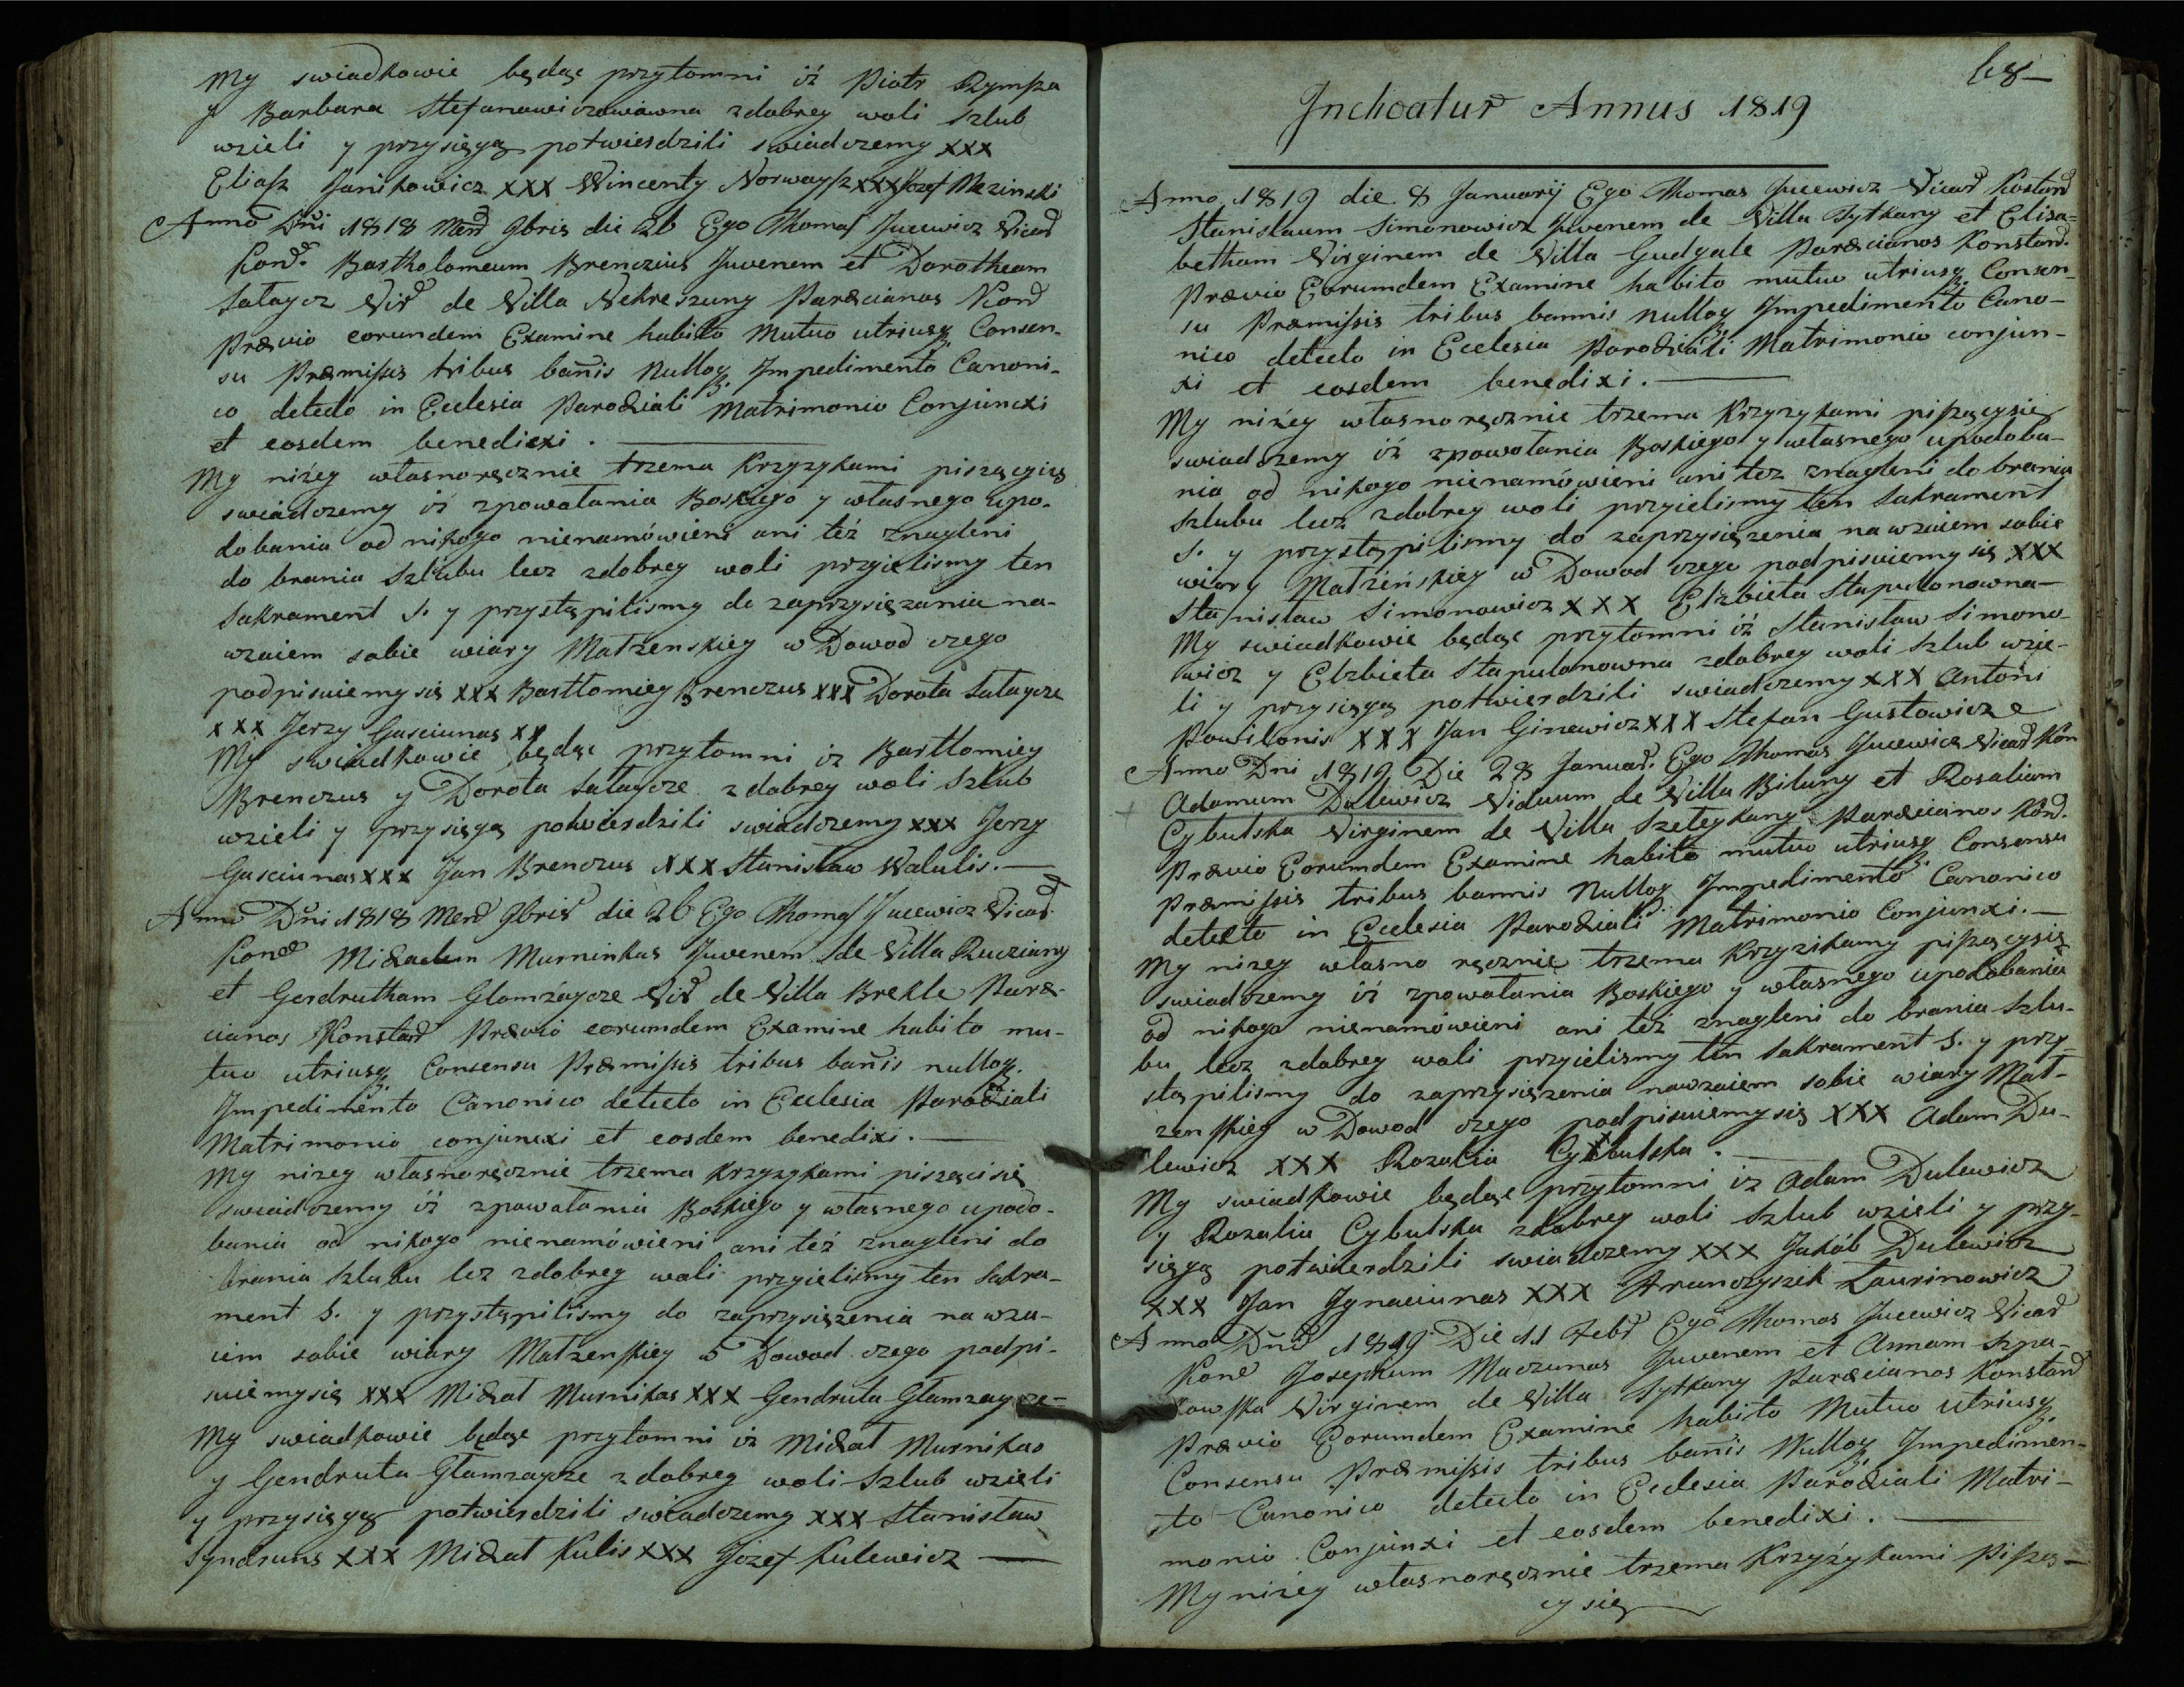 My swiadkowie będąc przytomni iż Piotr Rympza
y Barbara Stefanowiczowawna zdobrey woli Szlub
wzieli y przysięgą potwierdzili swiadczemy xxx
Eliasz Janikowicz xxx Wincenty Norwaysz xxx Jozef Mezinski
Anno Dni 1818 Mens 9bris die 26 Ego Thomas Jucewicz Vicar
Kons. Bartholomeum Brenczius Juvenem et Dorotheam
Sataycz Vir de Villa Nekreszuny Parœcianos Kons
Prævio eorundem Examine habito Mutuo utriusq Consen-
su Præmissis tribus bannis Nulloq Impedimento Canoni-
co detecto in Ecclesia Parochiali Matrimonio Conjuncxi
et eosdem benedicxi.
My niżey własnoręcznie trzema Krzyzykami pisząc​yię
swiadczemy iż zpowołania Boskiego y własnego upo-
dobania od nikogo nienamówieni ani też znagleni
do brania Szlubu lecz zdobrey woli przyielismy ten
Sakrament S. y przystąpilismy do zaprzysięzania na-
wzaiem sobie wiary Małzenskiey w Dowod czego
podpisuiemy się xxx Bartłomiey Brenczus xxx Dorota Sataycze
xxx Jerzy Gusciunas xx
My swiadkowie będąc przytomni iz Bartłomiey
Brenczus y Dorota Sataycze zdobrey woli Szlub
wzieli y przysięgą potwierdzili swiadczemy xxx Jerzy
Gusciunas xxx Jan Brenczus xxx Stanisław Walulis.
Anno Dni 1818 Mens 9bris die 26 Ego Thomas Jucewicz Vicar
Kons Michaelem Murninkas Juvenem de Villa Rudziany
et Gerdrutham Glamżaycze Vir de Villa Brekle Parœ-
cianos Konstan Prævio eorumdem Examine habito mu-
tuo utriusq Consensu Præmissis tribus bannis nulloq
Impedimento Canonico detecto in Ecclesia Parochiali
Matrimonio conjuncxi et eosdem benedixi.
My nizey własnoręcznie trzema Krzyzykami piszącisię
swiadczemy iż zpowołania Boskiego y własnego upodo-
bania od nikogo nienamówieni ani też znagleni do
brania Szlubu lez zdobrey woli przyielismy ten Sakra-
ment S. y przystąpilismy do zaprzysięzenia nawza-
iem sobie wiary Małzenskiey w Dowod czego podpi-
suiemysię xxx Michał Murnikas xxx Gendruta Glamzaycze-
My swiadkowie będąc przytomni iz Michał Murnikas
y Gendruta Głamzaycze zdobrey woli Szlub wzieli
y przysięgą potwierdzili swiadczemy xxx Stanisław
Syndruns xxx Michał Kulis xxx Jozef Kulewicz
68
Inchoatur Annus 1819
Anno 1819 die 8 Januarij Ego Thomas Jucewicz Vicar Kostan
Stanislaum Simonowicz Juvenem de Villa Sytkany et Elisa=
betham Virginem de Villa Gudgale Parœcianos Konstan.
Prævio Eorumdem Examine habito mutuo utriusq Consen-
su Præmissis tribus bannis nulloq Impedimento Cano-
nico detecto in Ecclesia Parochiali Matrimonio conjun-
xi et eosdem benedixi.
My niżey własnoręcznie trzema Krzyzykami piszącysię
swiadczemy iż zpowołania Boskiego y własnego upodoba-
nia od nikogo nienamówieni ani też znagleni do brania
Szlubu lecz zdobrey woli przyielismy ten Sakrament
S. y przystąpilismy do zaprzysięzenia nawzaiem sobie
wiary Małzeńskiey w Dowod czego podpisuiemysię xxx
Stanisław Simonowicz xxx Elzbieta Stapulonowna
My swiadkowie będąc przytomni iż Stanisław Simono-
wicz y Elzbieta Stapulonowna zdobrey woli Szlub wzie-
li y przysięgą potwierdzili swiadczemy xxx Antoni
Powilonis xxx Jan Ginewicz xxx Stefan Gustowicze
Anno Dni 1819 Die 28 Januar. Ego Thomas Jucewicz Vicar Kon
Adamum Dulewicz Viduum de Villa Biluny et Rosaliam
Cybulska Virginem de Villa Szeteykany Parœcianos Kon.
Prævio Eorumdem Examine habito mutuo utriusq Consensu
Præmissis tribus bannis Nulloq Impedimento Canonico
detecto in Ecclesia Parochiali Matrimonio Conjunxi.
My nizey własno ręcznie trzema Krzyzikamy piszącysię
swiadczemy iż zpowołania Boskiego y własnego upodobania
od nikogo nienamówieni ani też znagleni do brania Szlu-
bu lecz zdobrey woli przyielismy ten Sakrament S. y przy-
stąpilismy do zaprzysięzenia nawzaiem sobie wiary Mał-
zenskiey w Dowod czego podpisuiemysię xxx Adam Du-
lewicz xxx Rozalia Cybulska.
My swiadkowie będąc przytomni iz Adam Dulewicz
y Rozalia Cybulska zdobrey woli Szlub wzieli y przy-
sięgą potwierdzili swiadczemy xxx Jakób Dulewicz
xxx Jan Jgnaciunas xxx Franczyszek Laurinowicz
Anno Dni 1819 Die 11 Febr Ego Thomas Jucewicz Vicar
Kons Josephum Maczunas Juvenem et Annam Szpa-
kowska Virginem de Villa Sytkany Parœcianos Konstan
Prævio Eorumdem Examine habito Mutuo utriusq
Consensu Præmissis tribus bannis Nulloq Impedimen-
to Canonico detecto in Ecclesia Parochiali Matri-
monio Conjunxi et eosdem benedixi.
My niżey własnoręcznie trzema Krzyżykami Pisząc-
y się